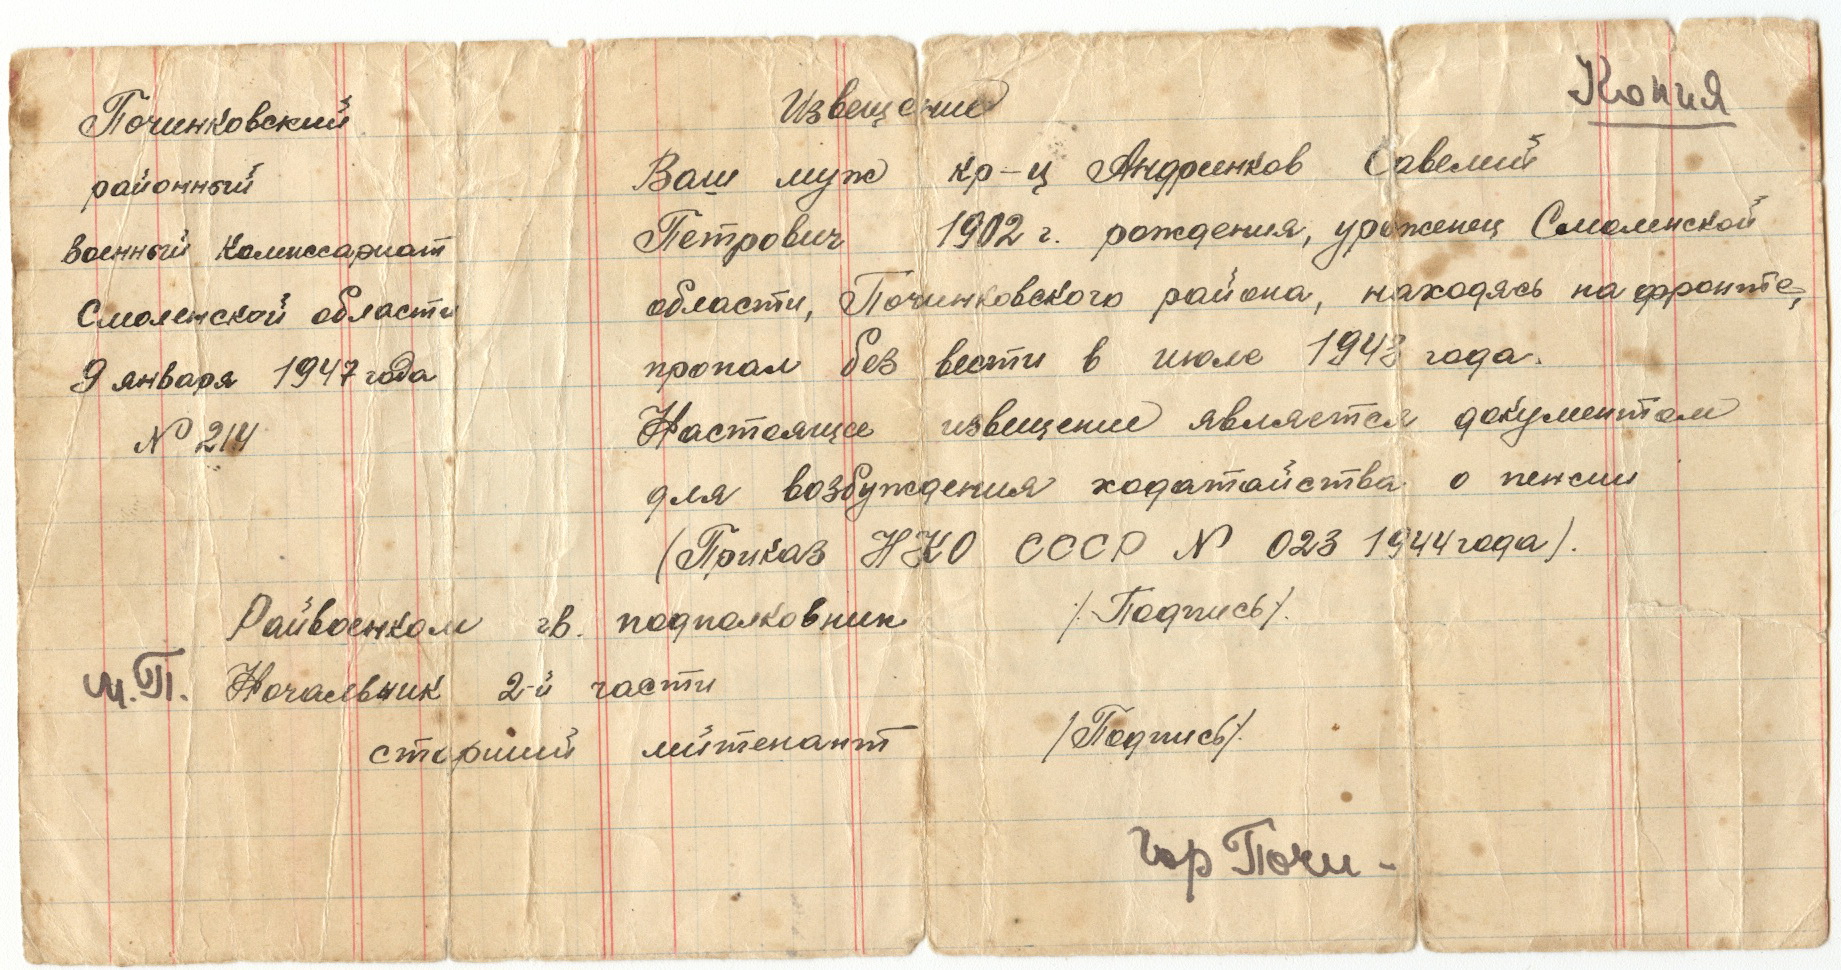 Копия
Починковский
районный
военный комиссариат
Смоленской области
9 января 1947 года
№ 214
Извещение
Ваш муж кр-ц Андреенков Савелий
Петрович 1902 г. рождения, уроженец Смоленской
области, Починковского района, находясь на фронте,
пропал без вести в июле 1943 года.
Настоящее извещение является документом
для возбуждения ходатайства о пенсии
(Приказ НКО СССР № 023 1944 года).
Райвоенком гв. подполковник /Подпись/.
М.П. Начальник 2-й части
старший лейтенант /Подпись/.
гор Почи-